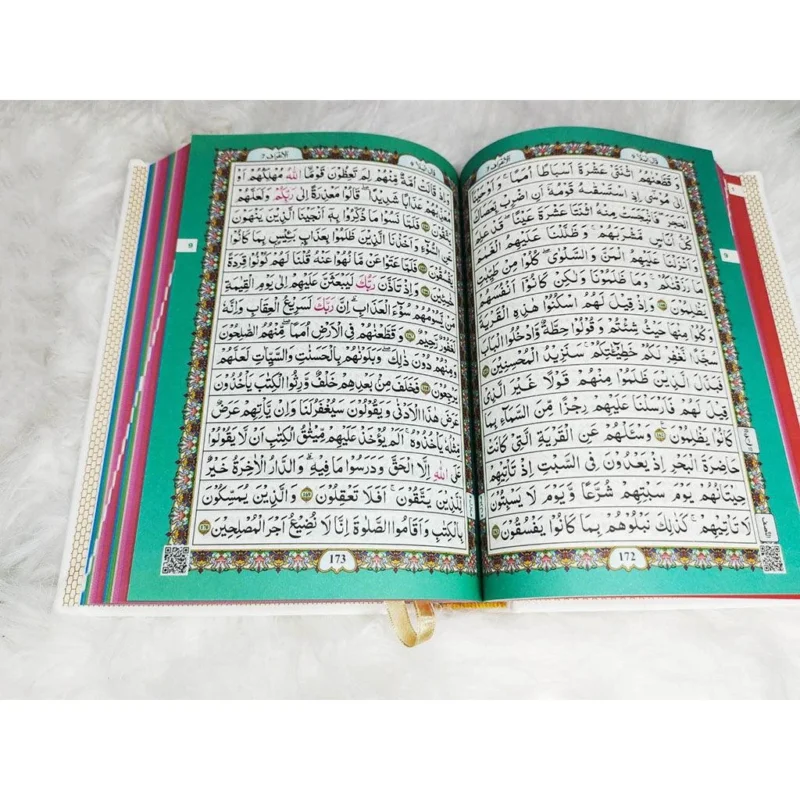 قال الملأ ٩
الأعراف ٧
وَقَطَّعْنٰهُمُ اثْنَتَيْ عَشْرَةَ اَسْبَاطًا اُمَمًاۗ وَاَوْحَيْنَآ
اِلٰى مُوْسٰٓى اِذِ اسْتَسْقٰىهُ قَوْمُهٗٓ اَنِ اضْرِبْ بِّعَصَاكَ
الْحَجَرَۚ فَانْۢبَجَسَتْ مِنْهُ اثْنَتَا عَشْرَةَ عَيْنًاۗ قَدْ عَلِمَ
كُلُّ اُنَاسٍ مَّشْرَبَهُمْۗ وَظَلَّلْنَا عَلَيْهِمُ الْغَمَامَ
وَاَنْزَلْنَا عَلَيْهِمُ الْمَنَّ وَالسَّلْوٰىۗ كُلُوْا مِنْ طَيِّبٰتِ
مَا رَزَقْنٰكُمْۗ وَمَا ظَلَمُوْنَا وَلٰكِنْ كَانُوْٓا اَنْفُسَهُمْ
يَظْلِمُوْنَ ۝١٦٠ وَاِذْ قِيْلَ لَهُمُ اسْكُنُوْا هٰذِهِ الْقَرْيَةَ
وَكُلُوْا مِنْهَا حَيْثُ شِئْتُمْ وَقُوْلُوْا حِطَّةٌ وَّادْخُلُوا الْبَابَ
سُجَّدًا نَّغْفِرْ لَكُمْ خَطِيْۤـٰٔتِكُمْۗ سَنَزِيْدُ الْمُحْسِنِيْنَ ۝١٦١
فَبَدَّلَ الَّذِيْنَ ظَلَمُوْا مِنْهُمْ قَوْلًا غَيْرَ الَّذِيْ
قِيْلَ لَهُمْ فَاَرْسَلْنَا عَلَيْهِمْ رِجْزًا مِّنَ السَّمَاۤءِ بِمَا
كَانُوْا يَظْلِمُوْنَ ۝١٦٢ وَسْـَٔلْهُمْ عَنِ الْقَرْيَةِ الَّتِيْ كَانَتْ
حَاضِرَةَ الْبَحْرِۘ اِذْ يَعْدُوْنَ فِى السَّبْتِ اِذْ تَأْتِيْهِمْ
حِيْتَانُهُمْ يَوْمَ سَبْتِهِمْ شُرَّعًا وَّيَوْمَ لَا يَسْبِتُوْنَۙ
لَا تَأْتِيْهِمْۛ كَذٰلِكَۛ نَبْلُوْهُمْ بِمَا كَانُوْا يَفْسُقُوْنَ ۝١٦٣
172
قال الملأ ٩
الأعراف ٧
وَاِذْ قَالَتْ اُمَّةٌ مِّنْهُمْ لِمَ تَعِظُوْنَ قَوْمًاۙ ࣙاللّٰهُ مُهْلِكُهُمْ اَوْ
مُعَذِّبُهُمْ عَذَابًا شَدِيْدًاۗ قَالُوْا مَعْذِرَةً اِلٰى رَبِّكُمْ وَلَعَلَّهُمْ
يَتَّقُوْنَ ۝١٦٤ فَلَمَّا نَسُوْا مَا ذُكِّرُوْا بِهٖٓ اَنْجَيْنَا الَّذِيْنَ يَنْهَوْنَ
عَنِ السُّوْۤءِ وَاَخَذْنَا الَّذِيْنَ ظَلَمُوْا بِعَذَابٍۢ بَـِٔيْسٍۢ بِمَا كَانُوْا
يَفْسُقُوْنَ ۝١٦٥ فَلَمَّا عَتَوْا عَنْ مَّا نُهُوْا عَنْهُ قُلْنَا لَهُمْ كُوْنُوْا قِرَدَةً
خٰسِـِٕيْنَ ۝١٦٦ وَاِذْ تَاَذَّنَ رَبُّكَ لَيَبْعَثَنَّ عَلَيْهِمْ اِلٰى يَوْمِ الْقِيٰمَةِ
مَنْ يَّسُوْمُهُمْ سُوْۤءَ الْعَذَابِۗ اِنَّ رَبَّكَ لَسَرِيْعُ الْعِقَابِۖ وَاِنَّهٗ
لَغَفُوْرٌ رَّحِيْمٌ ۝١٦٧ وَقَطَّعْنٰهُمْ فِى الْاَرْضِ اُمَمًاۚ مِنْهُمُ الصّٰلِحُوْنَ
وَمِنْهُمْ دُوْنَ ذٰلِكَۖ وَبَلَوْنٰهُمْ بِالْحَسَنٰتِ وَالسَّيِّاٰتِ لَعَلَّهُمْ
يَرْجِعُوْنَ ۝١٦٨ فَخَلَفَ مِنْۢ بَعْدِهِمْ خَلْفٌ وَّرِثُوا الْكِتٰبَ يَأْخُذُوْنَ
عَرَضَ هٰذَا الْاَدْنٰى وَيَقُوْلُوْنَ سَيُغْفَرُ لَنَاۚ وَاِنْ يَّأْتِهِمْ عَرَضٌ
مِّثْلُهٗ يَأْخُذُوْهُۗ اَلَمْ يُؤْخَذْ عَلَيْهِمْ مِّيْثَاقُ الْكِتٰبِ اَنْ لَّا يَقُوْلُوْا
عَلَى اللّٰهِ اِلَّا الْحَقَّ وَدَرَسُوْا مَا فِيْهِۗ وَالدَّارُ الْاٰخِرَةُ خَيْرٌ
لِّلَّذِيْنَ يَتَّقُوْنَۗ اَفَلَا تَعْقِلُوْنَ ۝١٦٩ وَالَّذِيْنَ يُمَسِّكُوْنَ
بِالْكِتٰبِ وَاَقَامُوا الصَّلٰوةَۗ اِنَّا لَا نُضِيْعُ اَجْرَ الْمُصْلِحِيْنَ ۝١٧٠
173
9
9